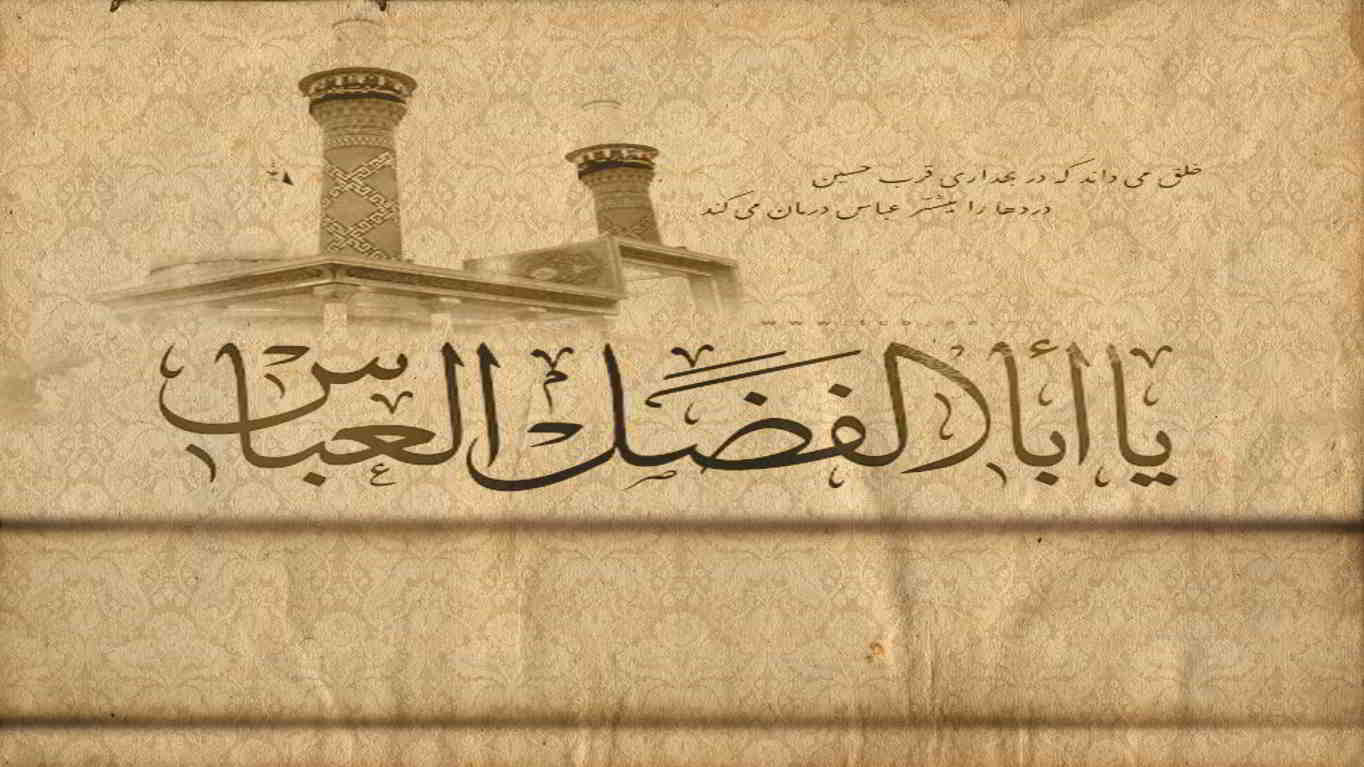 خلق می داند که در بحداری قرب حسین
دردها را بیشتر عباس درمان می کند
یا أبا الفضل العباس